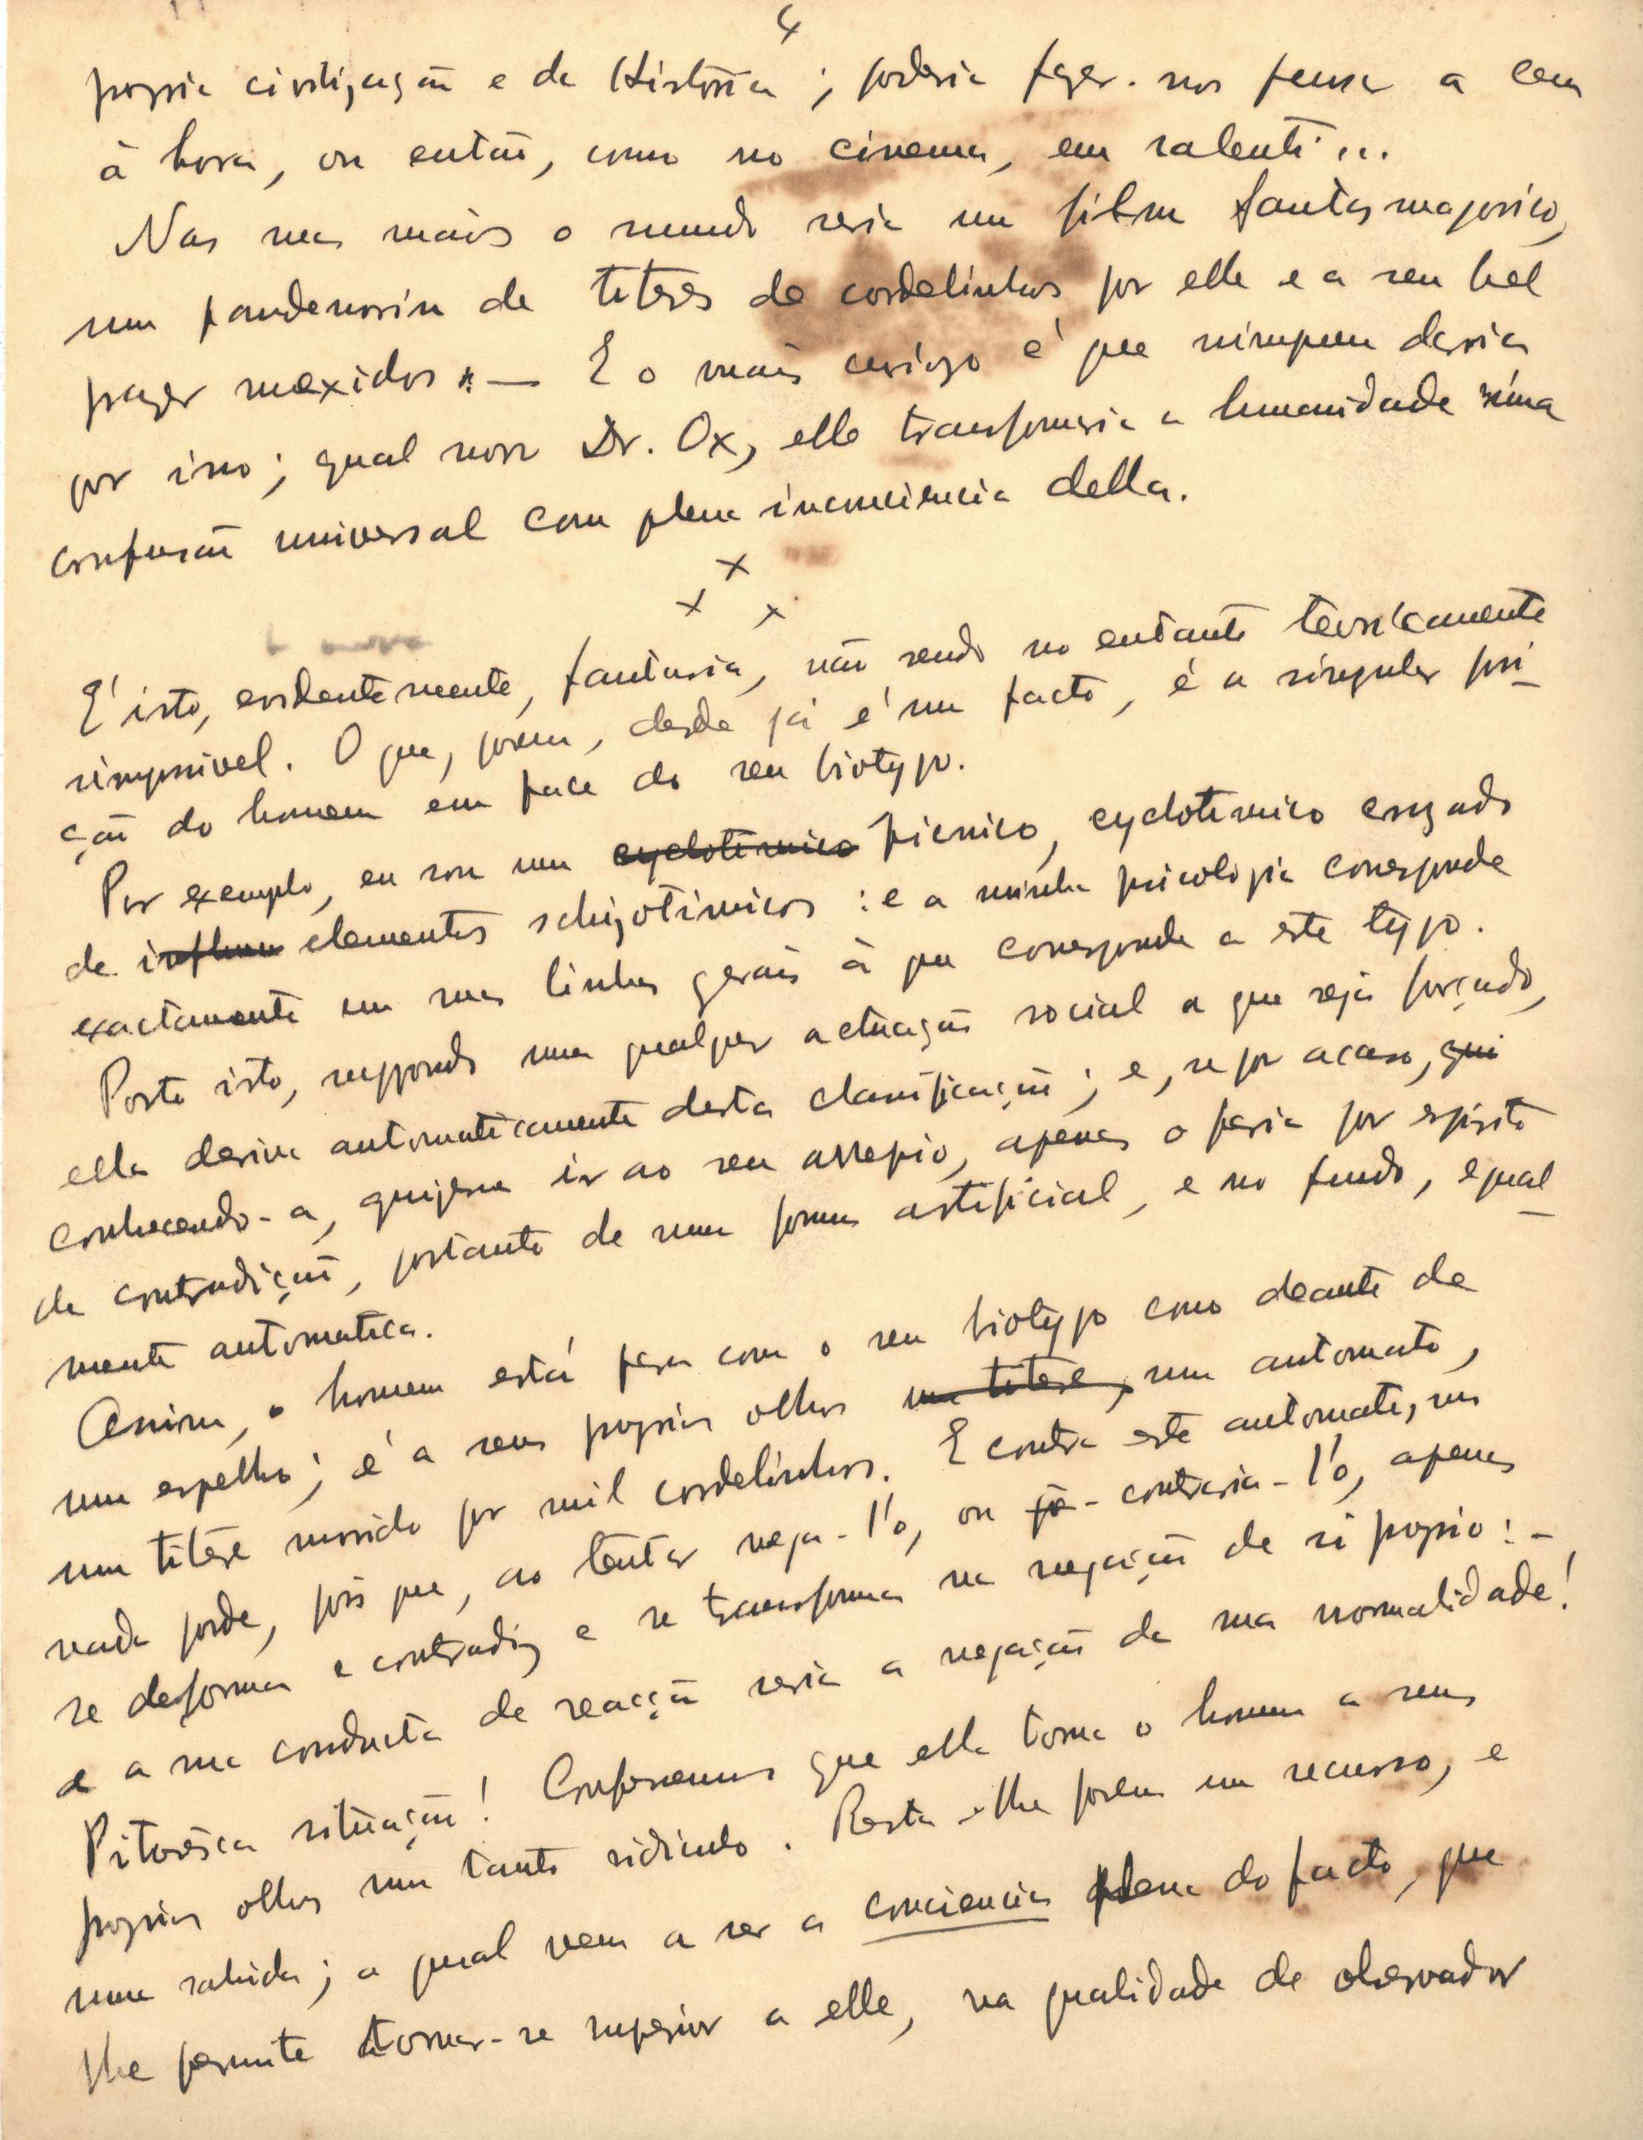 4
propria civilização e da Historia; poderia fazer-nos pensar a cem
à hora, ou então, como no cinema, em ralenti...
Nas suas mãos o mundo seria um film fantasmagorico,
um pandemorium de titeres de cordelinhos por elle e a seu bel
prazer mexidos. — E o mais curiozo é que ninguem daria
por isso; qual novo Dr. Ox, elle transformaria a humanidade numa
confusão universal com plena inconciencia della.
x x x
É isto, evidentemente, fantasia, não sendo no entanto teoricamente
impossivel. O que, porem, desde já é um facto, é a singular posi-
ção do homem em face do seu biotypo.
Por exemplo, eu sou um cyclotimico picnico, cyclotimico cruzado
de influen elementos schizotimicos: e a minha psicologia corresponde
exactamente em suas linhas gerais à que corresponde a este typo.
Posto isto, suppondo uma qualquer actuação social a que seja forçado,
ella deriva automaticamente desta classificação; e, se por acaso, qui
conhecendo-a, quizesse ir ao seu arrepio, apenas o faria por espirito
de contradição, portanto de uma forma artificial, e no fundo, egual-
mente automatica.
Assim, o homem está para com o seu biotypo como deante de
um espelho; é a seus proprios olhos um titere, um automato,
um titere movido por mil cordelinhos. E contra este automato,
nada pode, pois que, ao tentar nega-l'o, ou contraria-l'o, apenas
se deforma e contradiz e se transforma na negação de si proprio: -
e a sua conducta de reacção seria a negação da sua normalidade!
Pitoresca situação! Confessemos que ella torna o homem a seus
proprios olhos um tanto ridiculo. Resta-lhe porem um recurso, e
uma sahida; a qual vem a ser a conciencia plena do facto, que
lhe permite tornar-se superior a elle, na qualidade de observador